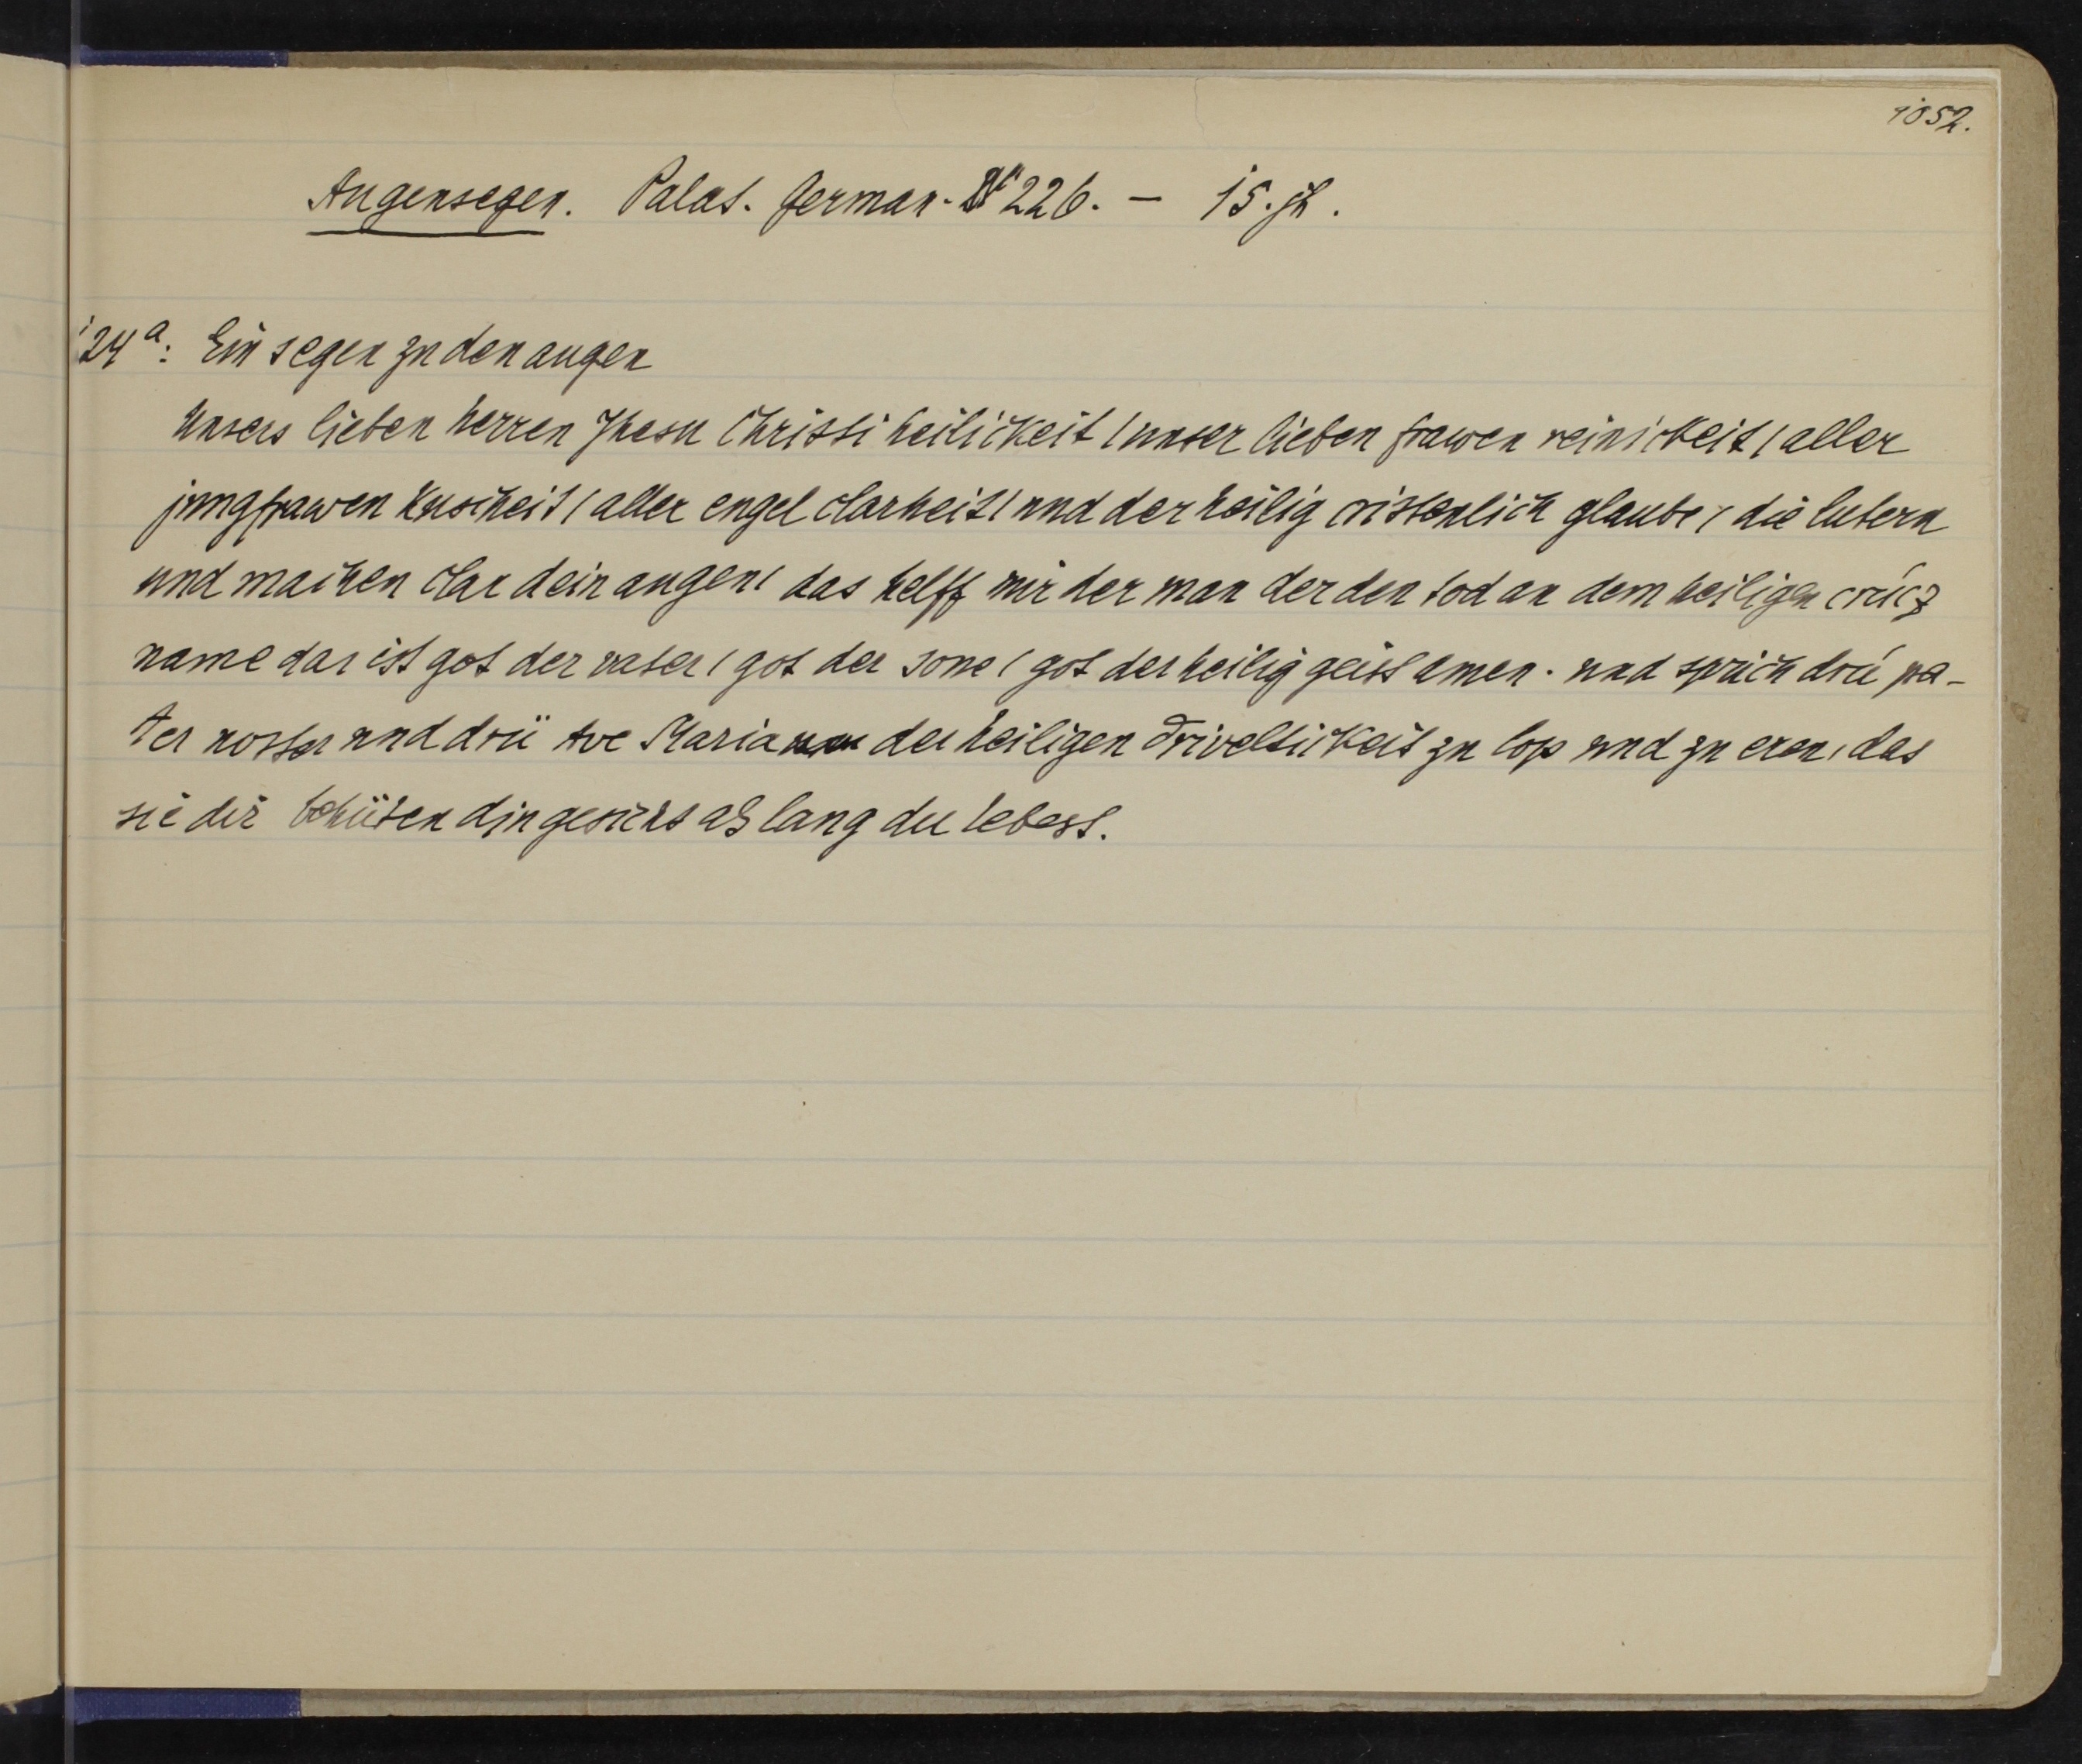 1052.
Augensegen. Palat. German. N° 226. – 15. jh.
124a: Ein segen zu den augen
Unsers lieben herren Jhesu Christi heilickeit / unser lieben frawen reinickeit / aller
jungfrawen kuscheit / aller engel clarheit / und der heilig cristenlich glaube / die lutern
und machen clar dein augen / das helff mir der man der den tod an dem heiligen crücz
name dar ist got der vater / got der sone / got der heilig geist amen. und sprich drü pa-
ter noster und drü Ave Maria der heiligen Triveltickeit zu lop und zu eren, das
sie dir behüten din gesicht als lang du lebest.